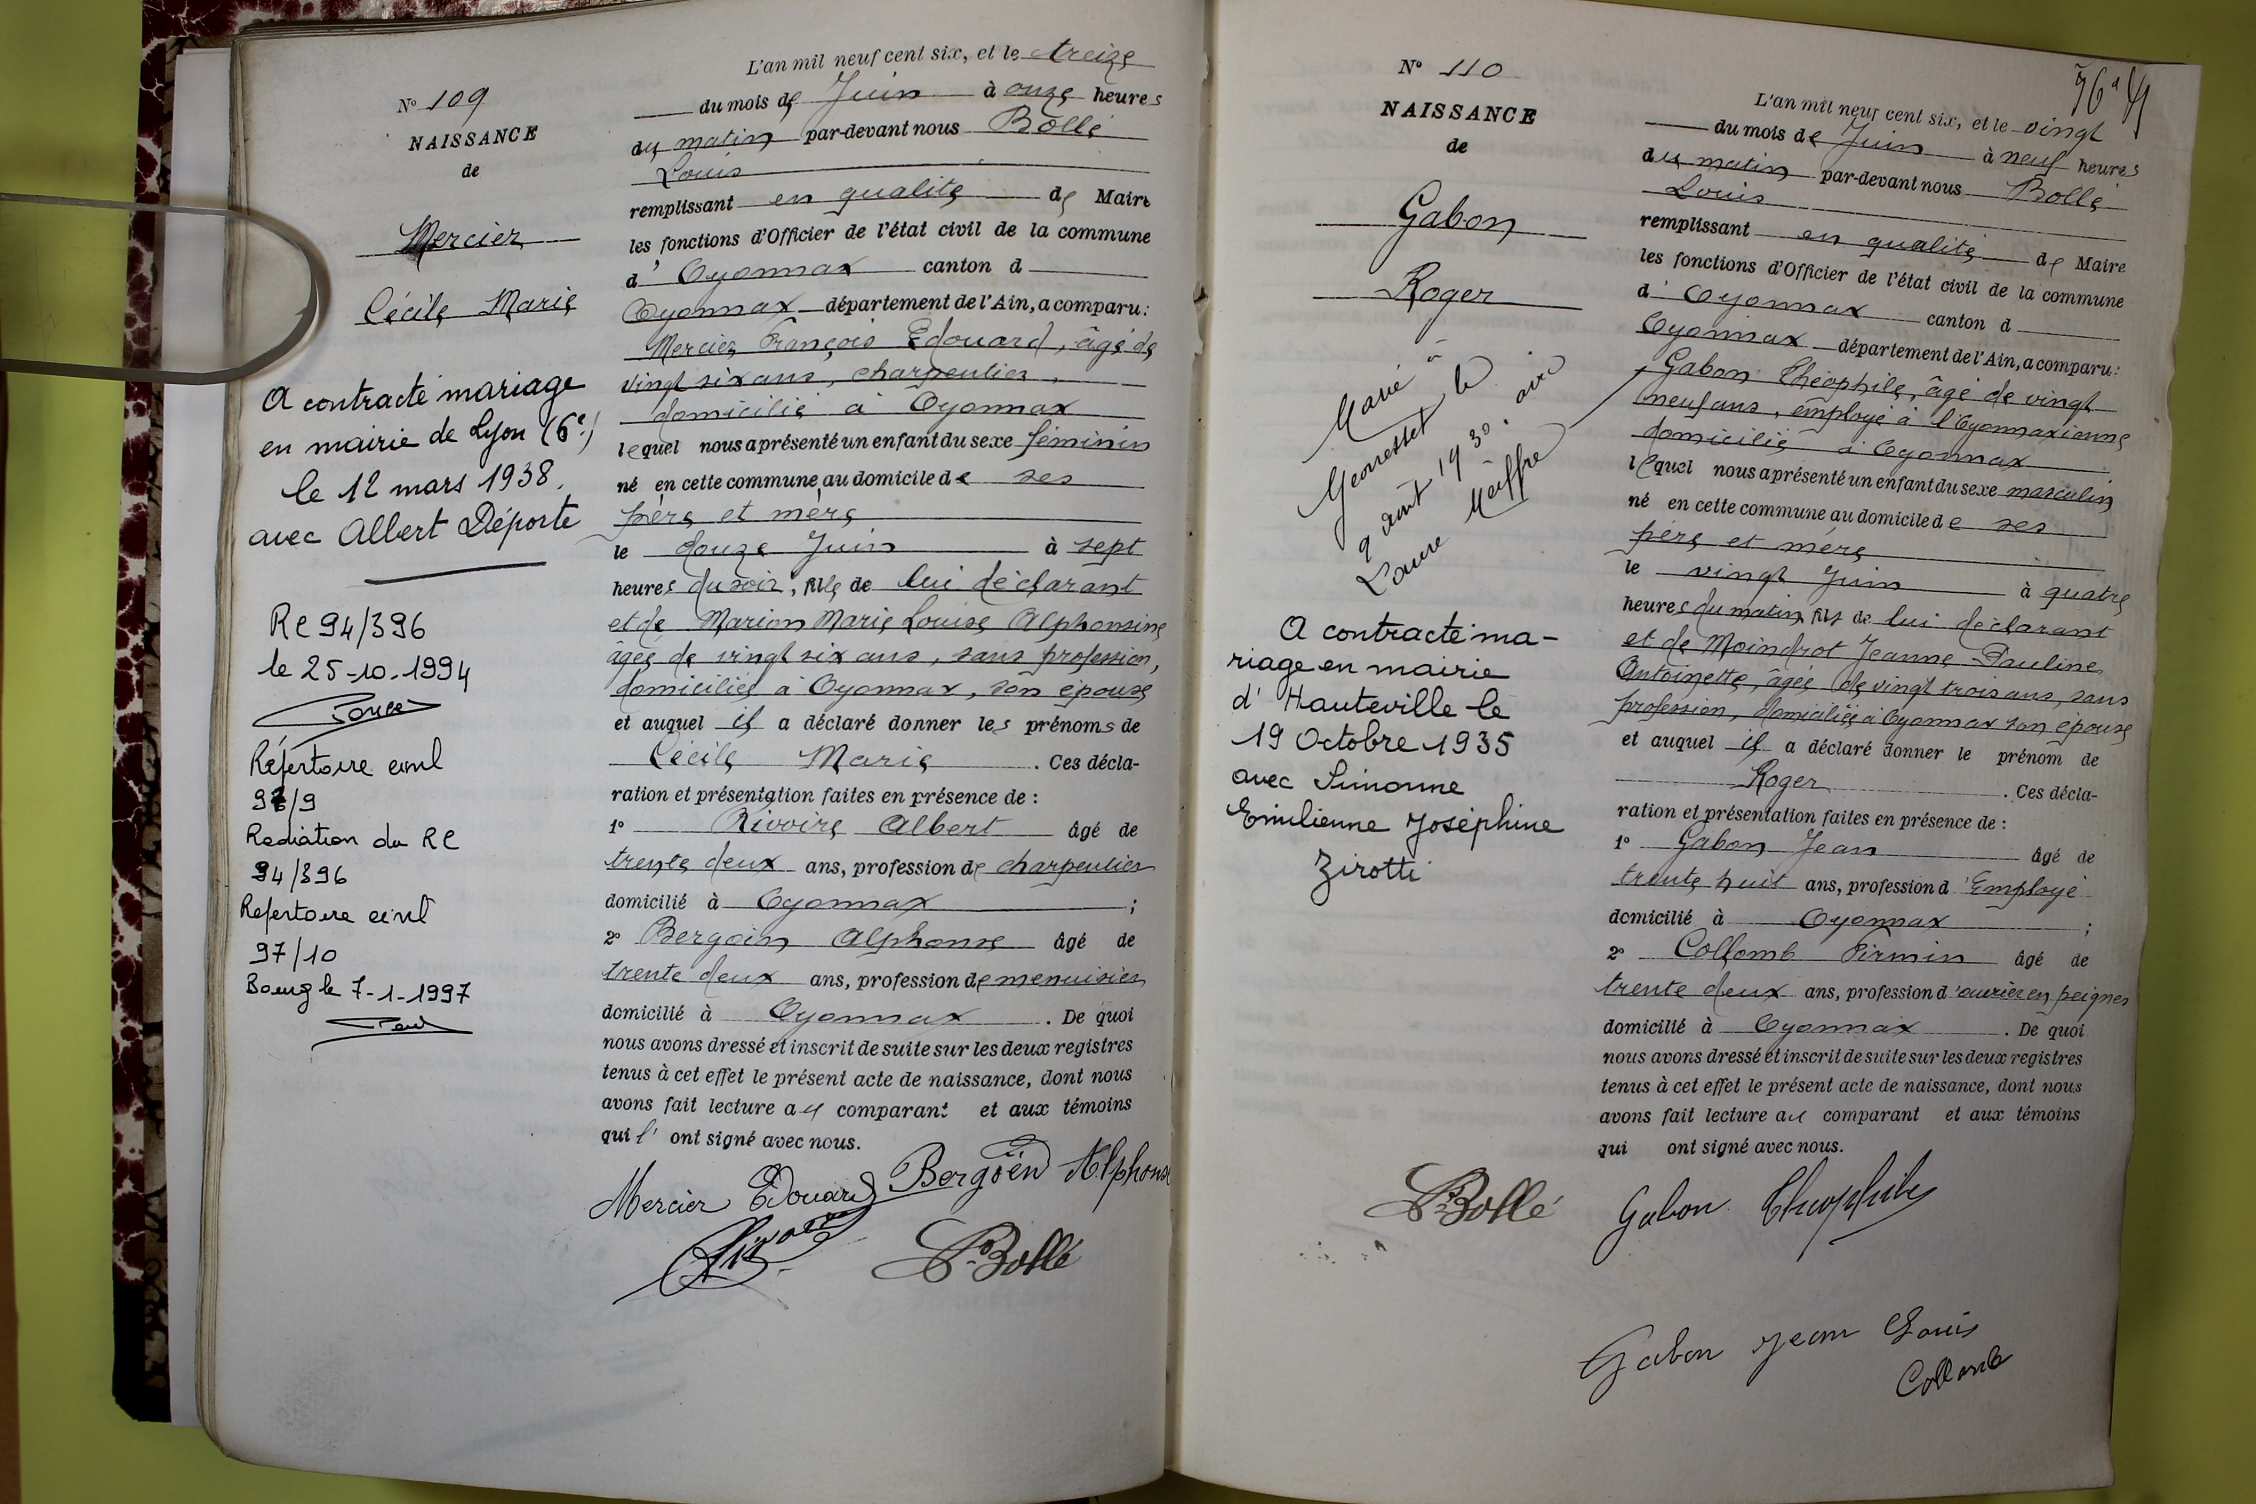 N° 109
NAISSANCE
de
Mercier
Cécile Marie
A contracté mariage
en mairie de Lyon (6e)
le 12 mars 1938.
avec Albert Déporte
RC 94/396
le 25-10-1994
Répertoire civil
97/9
Radiation du RC
94/396
Répertoire civil
97/10
Bourg le 7-1-1997
L'an mil neuf cent six, et le treize
du mois de Juin à onze heures
du matin par-devant nous Bollé
Louis
remplissant en qualité de Maire
les fonctions d'Officier de l'état civil de la commune
d'Oyonnax canton d
Oyonnax département de l'Ain, a comparu:
Mercier François Edouard, âgé de
vingt six ans, charpentier,
domicilié à Oyonnax
lequel nous a présenté un enfant du sexe féminin
né en cette commune, au domicile de ses
père et mère
le douze Juin à sept
heures du soir, fille de lui déclarant
et de Marion Marie Louise Alphonsine
agée de vingt six ans, sans profession,
domiciliée à Oyonnax, son épouse
et auquel il a déclaré donner les prénoms de
Cécile Marie. Ces décla-
ration et présentation faites en présence de :
1° Rivoire Albert âgé de
trente deux ans, profession de charpentier
domicilié à Oyonnax ;
2° Bergoin Alphonse âgé de
trente deux ans, profession de menuisier
domicilié à Oyonnax. De quoi
nous avons dressé et inscrit de suite sur les deux registres
tenus à cet effet le présent acte de naissance, dont nous
avons fait lecture au comparant et aux témoins
qui l' ont signé avec nous.
Mercier Edouard Bergoën Alphonse
Rivoire
L. Bollé
76e
N° 110
NAISSANCE
de
Gabon
Roger
Marié à
le
9 août 1930. avec
Laure Meiffre
A contracté ma-
riage en mairie
d'Hauteville le
19 Octobre 1935
avec Simonne
Emilienne Joséphine
Zirotti
L'an mil neuf cent six, et le vingt
du mois de Juin à neuf heures
du matin par-devant nous Bollé
Louis
remplissant en qualité de Maire
les fonctions d'Officier de l'état civil de la commune
d'Oyonnax canton d
Oyonnax département de l'Ain, a comparu:
Gabon Théophile, âgé de vingt
neuf ans, employé à l'Oyonnaxienne
domicilié à Oyonnax
lequel nous a présenté un enfant du sexe masculin
né en cette commune au domicile de ses
père et mère
le vingt Juin à quatre
heures du matin, fils de lui déclarant
et de Moindrot Jeanne Pauline
Antoinette, âgée de vingt trois ans, sans
profession, domiciliée à Oyonnax son épouse
et auquel il a déclaré donner le prénom de
Roger. Ces décla-
ration et présentation faites en présence de :
1° Gabon Jean âgé de
trente huit ans, profession d'Employé
domicilié à Oyonnax ;
2° Collomb Firmin âgé de
trente deux ans, profession d'ouvrier en peignes
domicilié à Oyonnax. De quoi
nous avons dressé et inscrit de suite sur les deux registres
tenus à cet effet le présent acte de naissance, dont nous
avons fait lecture au comparant et aux témoins
qui ont signé avec nous.
L. Bollé Gabon Théophile
Gabon Jean Louis
Collomb